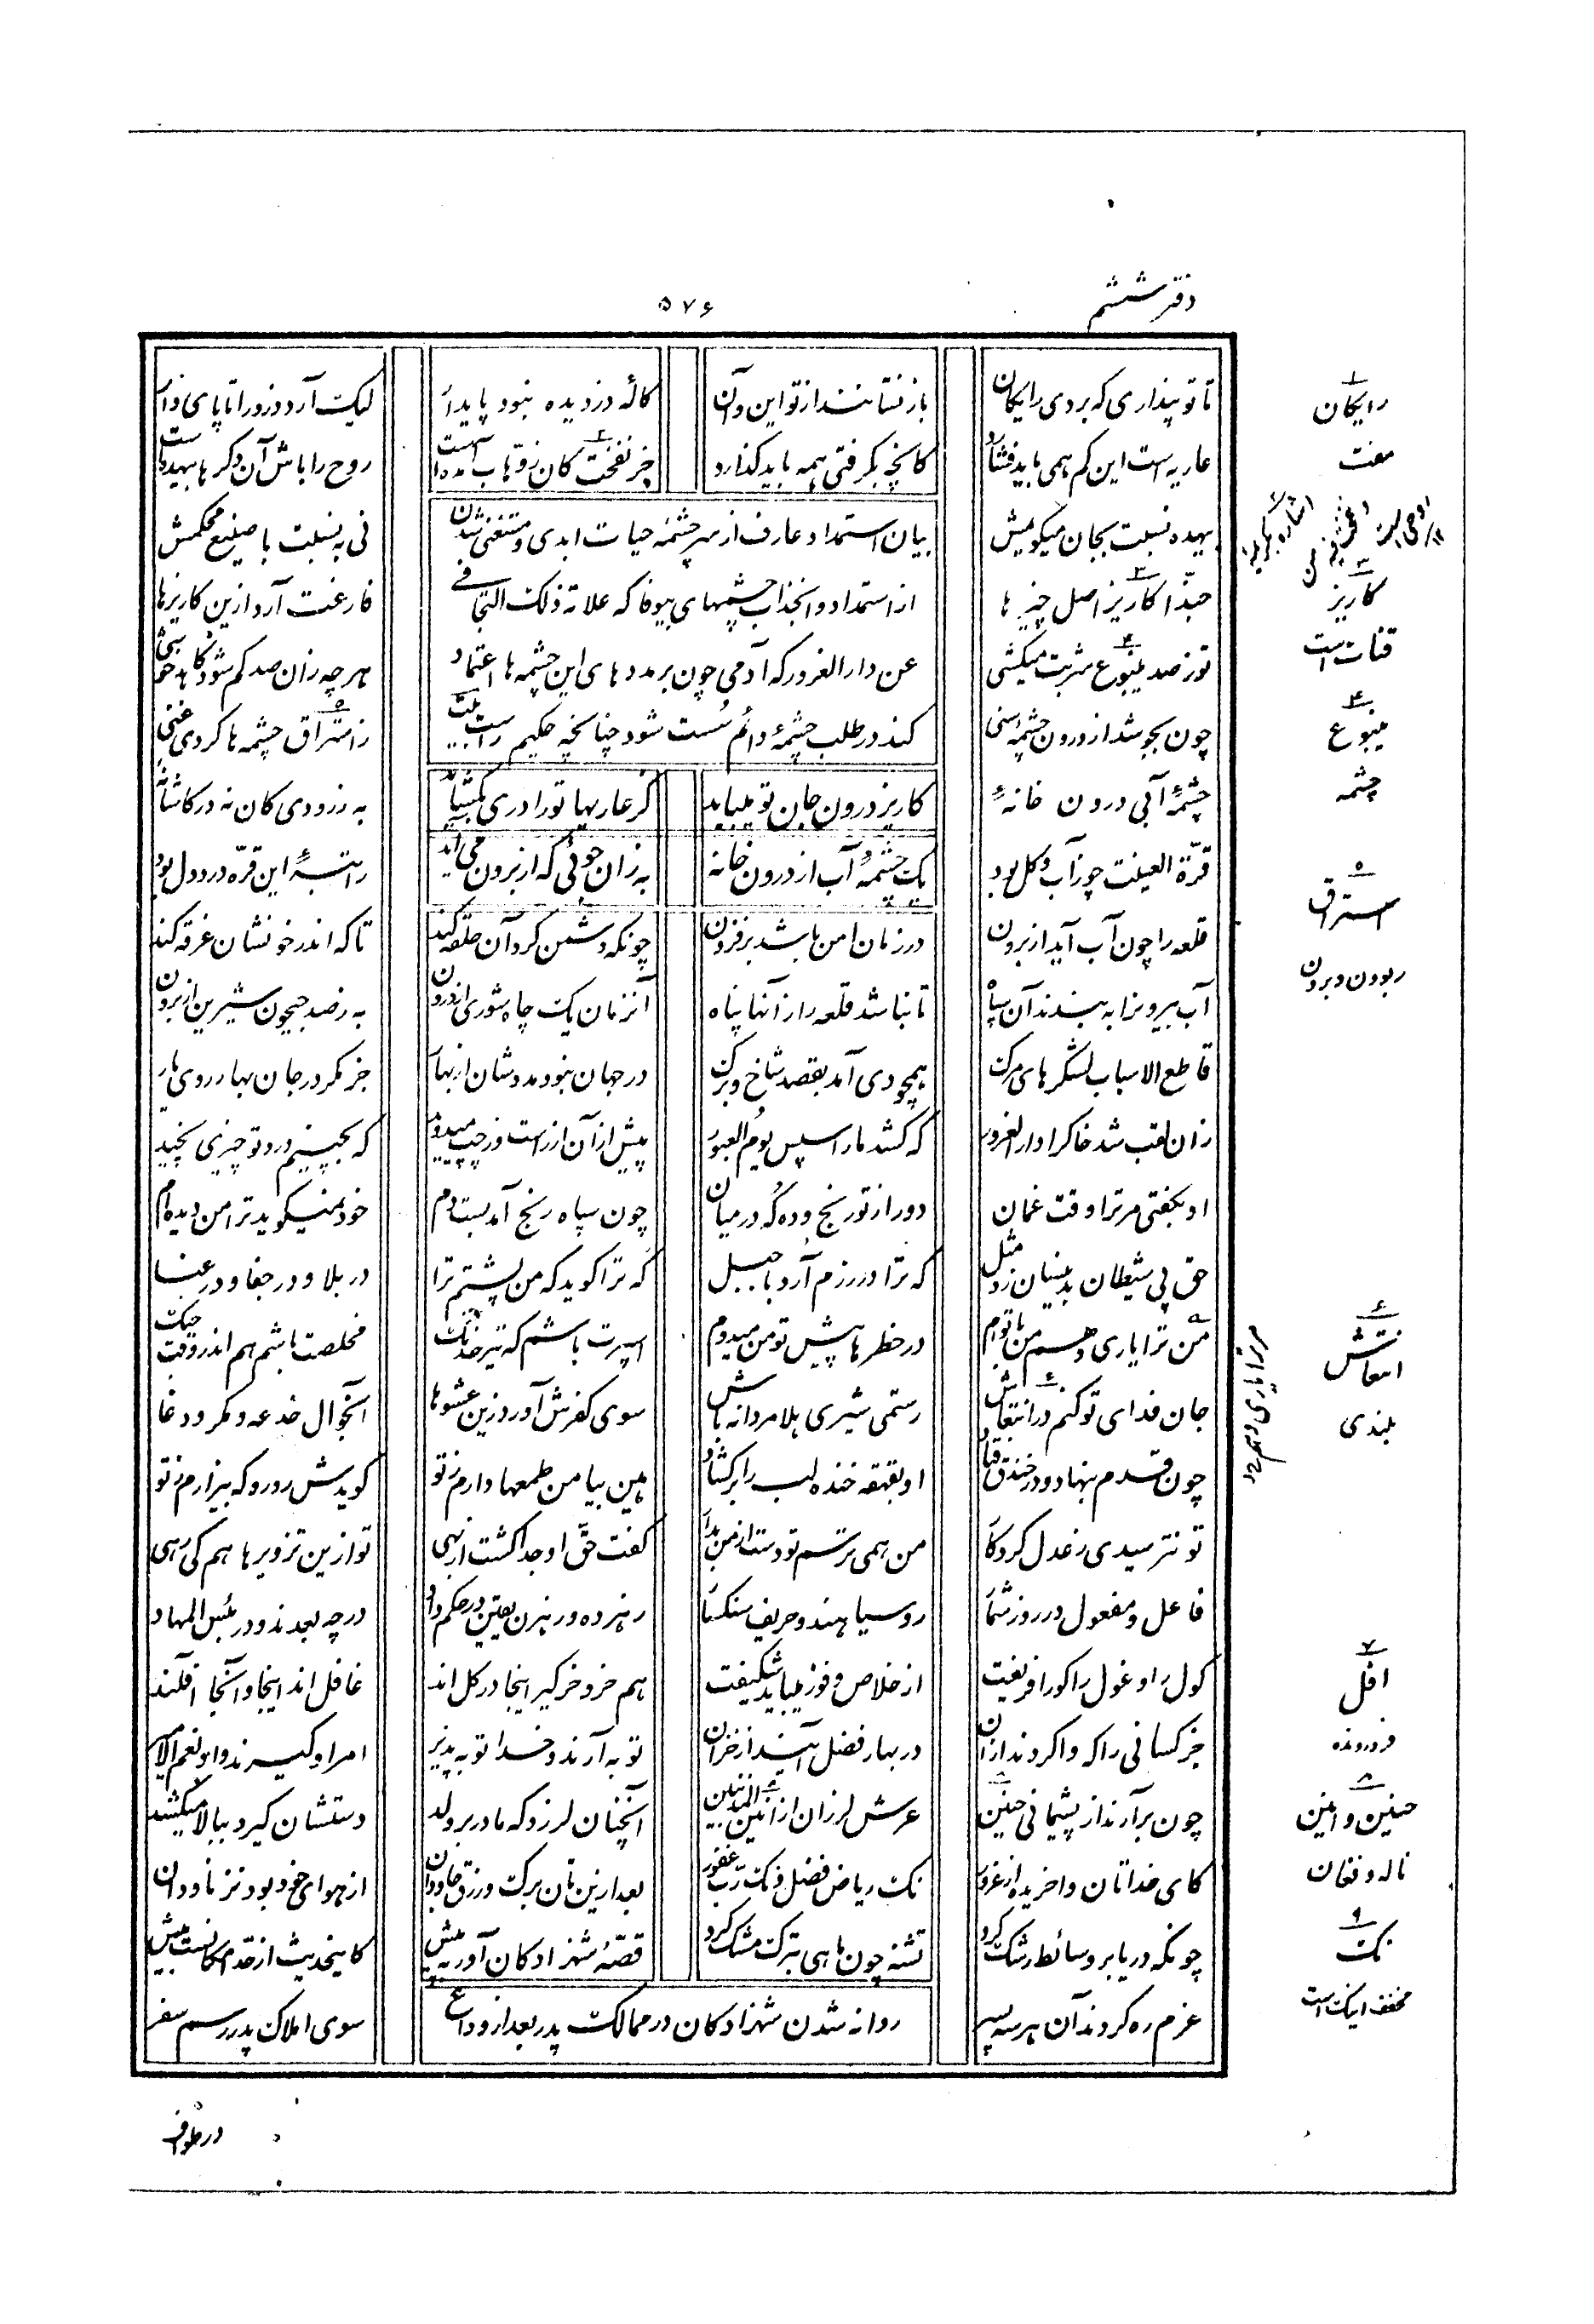 دفتر ششم
۵۷۶
تا تو پنداری که بردی رایگان
باز نستانند از تو این و آن
کالهٔ دزدیده نبود پایدار
لیک آرد دزد را تا پای دار
عاریه است این کم همی باید فشارد
کانچه بگرفتی همه باید گذارد
جز نفخت کان ز وهاب آمده است
روح را باش آن دگرها بیهده است
بیهده نسبت بجان میگویمش
نی به نسبت با صنیع محکمش
بیان استمداد عارف از سرچشمهٔ حیات ابدی و مستغنی شدن
از استمداد و انجذاب چشمهای بیوفا که علامة ذلک التجافی
عن دار الغرور که آدمی چون بر مددهای این چشمه ها اعتماد
کند در طلب چشمهٔ دائم سست شود چنانچه حکیم راست بیت
حبذا کاریز اصل چیزها
فارغت آرد ازین کاریزها
تو ز صد ینبوع شربت میکشی
هر چه زان صد کم شود کاهد خوشی
چون بجوشد از درون چشمهٔ سنی
ز استراق چشمه ها گردی غنی
چشمهٔ آبی درون خانهٔ
به ز رودی کان نه در کاشانهٔ
کاریز درون جان تو میباید
کز عاریها تو را دری نگشاید
یک چشمهٔ آب از درون خانه
به زان جوئی که از برون می آید
قرة العینت چو ز آب و گل بود
راتبهٔ این قره درد دل بود
قلعه را چون آب آید از برون
در زمان امن باشد بر فزون
چونکه دشمن گرد آن حلقه کند
تا که اندر خونشان غرقه کند
آب بیرونرا به بندند آن سپاه
تا نباشد قلعه را ز آنها پناه
آنزمان یک چاه شوری اندرون
به ز صد جیحون شیرین از برون
قاطع الاسباب لشکرهای مرگ
همچو دی آمد بقصد شاخ و برگ
در جهان نبود مددشان از بهار
جز مگر در جان بهار روی یار
زان لقب شد خاک را دار الغرور
که کشد پا را سپس یوم العبور
پیش از آن از راست وز چپ میدوید
که بچینم درد تو چیزی نچید
او بگفتی مر ترا وقت غمان
دور از تو رنج و ده که در میان
چون سپاه رنج آمد بست دم
خود نمیگوید ترا من دیده ام
حق پی شیطان بدینسان زد مثل
که ترا در رزم آرد با حیل
که ترا گوید که من پشتم ترا
در بلا و در جفا و در عنا
من ترا یاری دهم من با توام
در خطرها پیش تو من میدوم
اسپرت باشم گه تیر خدنگ
مخلصت باشم هم اندر وقت جنگ
جان فدای تو کنم در انتعاش
رستمی شیری هلا مردانه باش
سوی کفرش آورد زین عشوه ها
آنجوال خدعه و مکر و دغا
چون قدم بنهاد و در خندق فتاد
او بقهقه خنده لب را بر گشاد
هین بیا من طمعها دارم ز تو
گویدش رو رو که بیزارم ز تو
تو نترسیدی ز عدل کردگار
من همی ترسم تو دست از من بدار
گفت حق او جدا گشت از بهی
تو ازین تزویرها هم کی رهی
فاعل و مفعول در روز شمار
رو سیاهند و حریف سنگسار
رهزده و رهزن یقین در حکم داد
در چه بعدند و در بئس المهاد
گول را و غول را کو را فریفت
از خلاص و فوز میباید شکیفت
هم خر و خرگیر اینجا در گل اند
غافل اند اینجا و آنجا آفلند
جز کسانی را که وا گردند از آن
در بهار فضل آیند از خزان
توبه آرند و خدا توبه پذیر
امر او گیرند و او نعم الامیر
چون بر آرند از پشیمانی حنین
عرش لرزان از انین المذنبین
آنچنان لرزد که مادر بر ولد
دستشان گیرد ببالا میکشد
کای خداتان وا خریده از غرور
نک ریاض فضل و نک رب غفور
بعد ازین تان برگ و رزق جاودان
از هوای خود بود نز ناودان
چونکه دریا بر وسائط رشک کرد
تشنه چون ماهی بترک مشک کرد
قصهٔ شهزادگان آور به پیش
کاینحدیث از حد امکانست بیش
روانه شدن شهزادگان در ممالک پدر بعد از وداع
عزم ره کردند آن هر سه پسر
سوی املاک پدر رسم سفر
در طواف
۱
رایگان
مفت
۲
اشاره بکریمه
۳
کاریز
قنات است
۴
ینبوع
چشمه
۵
استراق
ربودن و بردن
۶
انتعاش
بلندی
مر ترا یاری دهم
۷
افل
فرو رونده
۸
حنین و انین
ناله و فغان
۹
نک
مخفف اینک است